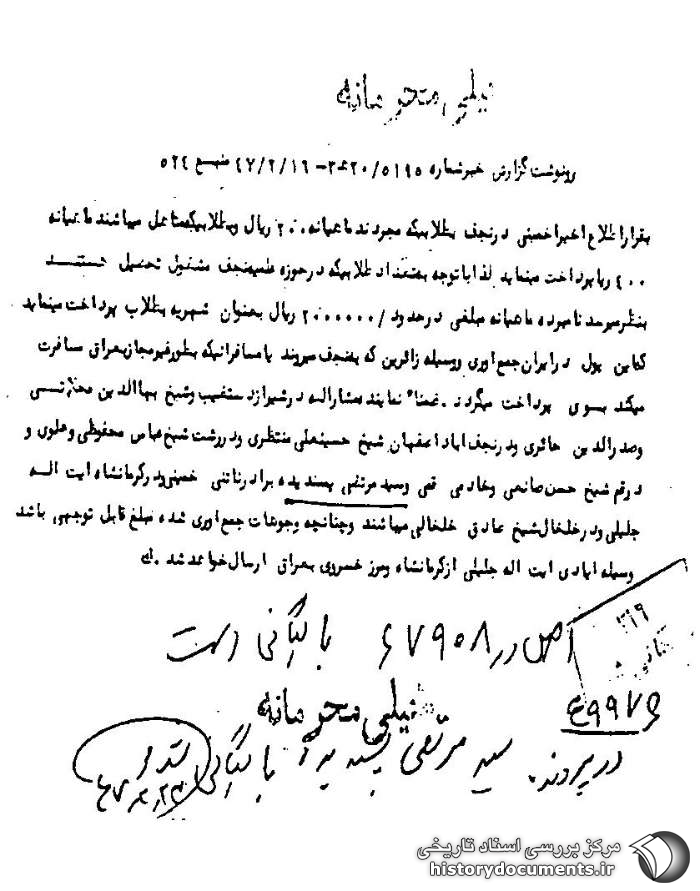 خیلی محرمانه
رونوشت گزارش خبر شماره ۵۱۹۵/ ۴۷/۲/۱۶ منبع ۵۲۴
بقرار اطلاع اخیرا خمینی در نجف بطلابیکه مجردند ماهیانه ۲۰۰ ریال و بطلابیکه متاهل میباشند ماهیانه
۴۰۰ ریا پرداخت مینماید لذا با توجه بتعداد طلابیکه در حوزه علمیه نجف مشغول تحصیل هستنــد
بنظر میرسد نامبرده ماهیانه مبلغی در حدود /۲۰۰۰۰۰۰ ریال بعنوان شهریه بطلاب پرداخت مینماید
که این پول در ایران جمع اوری و وسیله زائرین که بنجف میروند یا مسافرانیکه بطور غیر مجاز بعراق مسافرت
میکند بسوی پرداخت میگردد . ضمنا" نماینده مشارالیه در شیراز دستغیب و شیخ بها الدین محلاتــی
و صدرالدین حائری و در نجف اباد اصفهان شیخ حسینعلی منتظری و در رشت شیخ عباس محفوظی و علوی و
در قم شیخ حسن صانعی و خادمی قمی و سید مرتضی پسندیده برادر ناتنی خمینی و در کرمانشاه ایت الــه
جلیلی و در خلخال شیخ صادق خلخالی میباشند و چنانچه وجوهات جمع اوری شده مبلغ قابل توجهی باشد
وسیله ایادی ایت اله جلیلی از کرمانشاه و مرز خسروی بعراق ارسال خواهد شد . ك
اصل در ۶۷۹۰۸ بایگانی است
۱۹
خیلی محرمانه
در پرونده سید مرتضی پسندیده بایگانی شد
مرکز بررسی اسناد تاریخی
historydocuments.ir